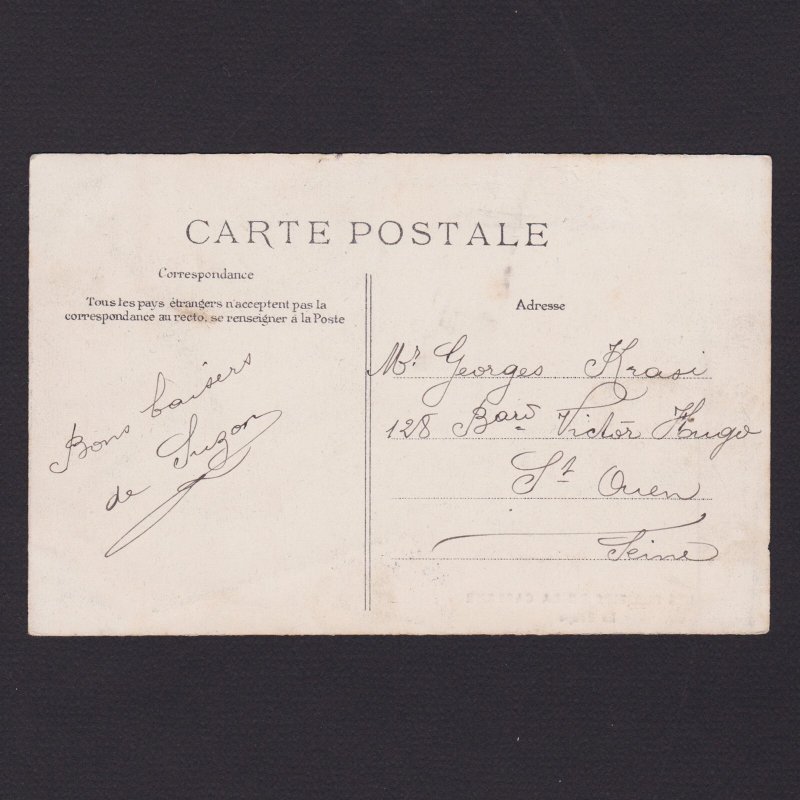 CARTE POSTALE
Correspondance
Tous les pays étrangers n'acceptent pas la
correspondance au recto, se renseigner à la Poste
Bons baisers
de Suzon
Adresse
Mr. Georges Krasi
128 Bard Victor Hugo
St Ouen
Seine